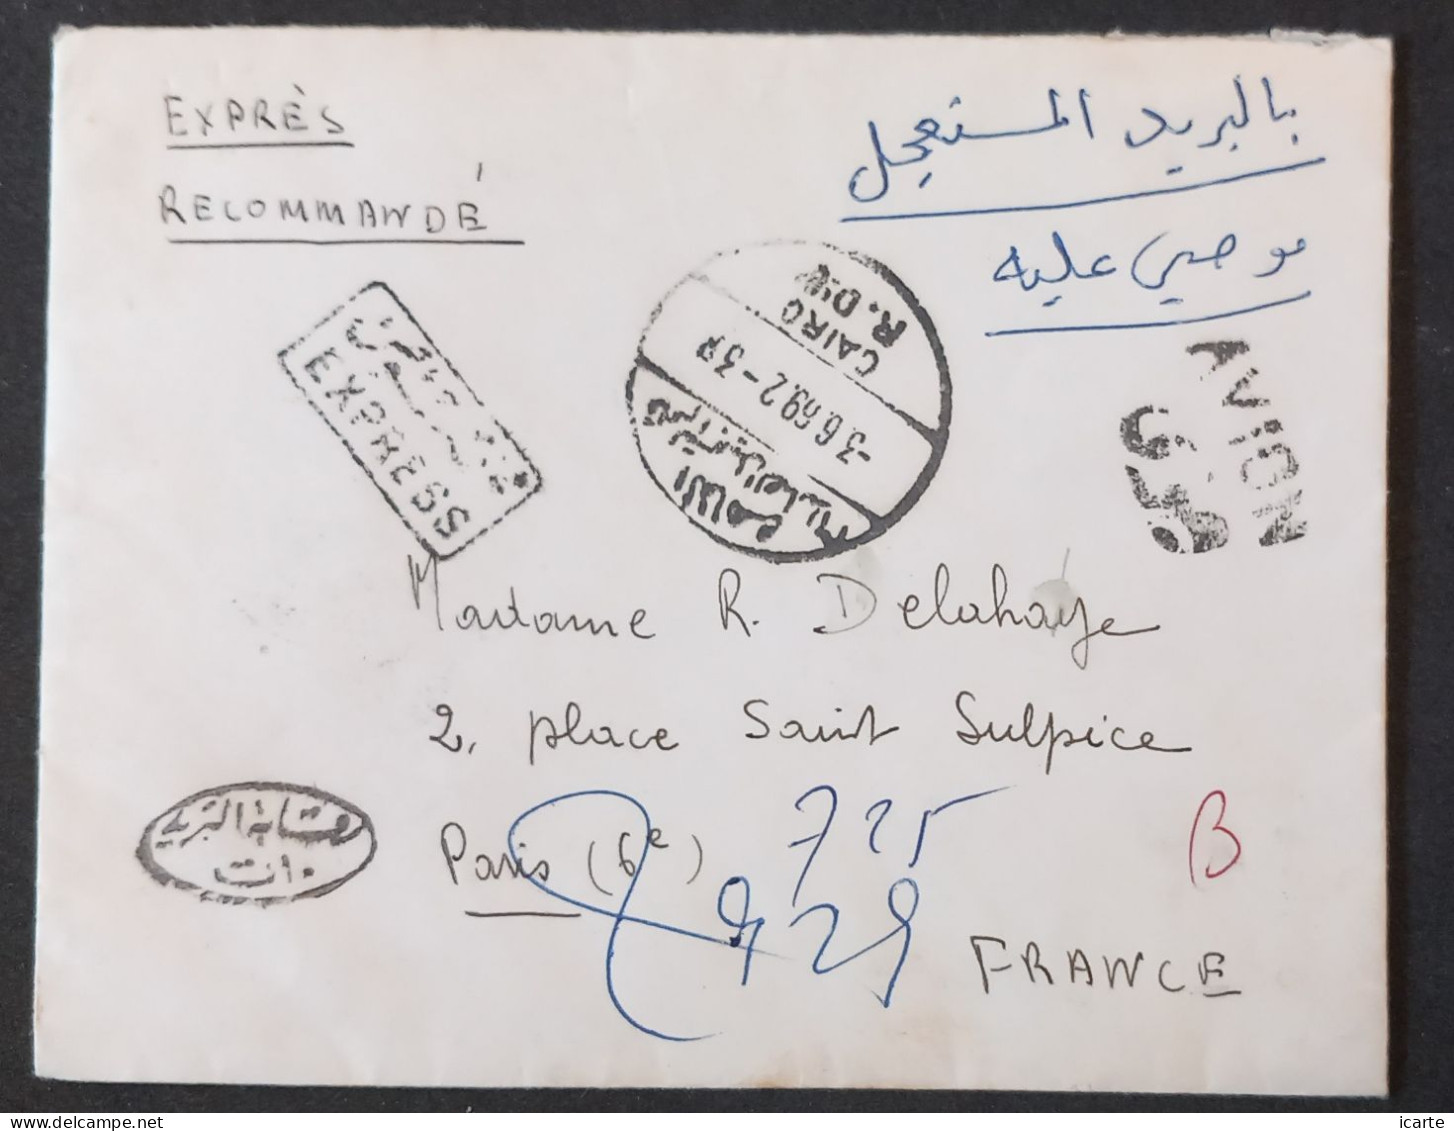 EXPRÈS
RECOMMANDÉ
بالبريد المستعجل
موصى عليه
EXPRESS
CAIRO
R. DIW
-3.6.69.2-3P
القاهرة
AVION
Madame R. Delahaye
2, place Saint Sulpice
Paris (6e)
725
B
FRANCE
icarte